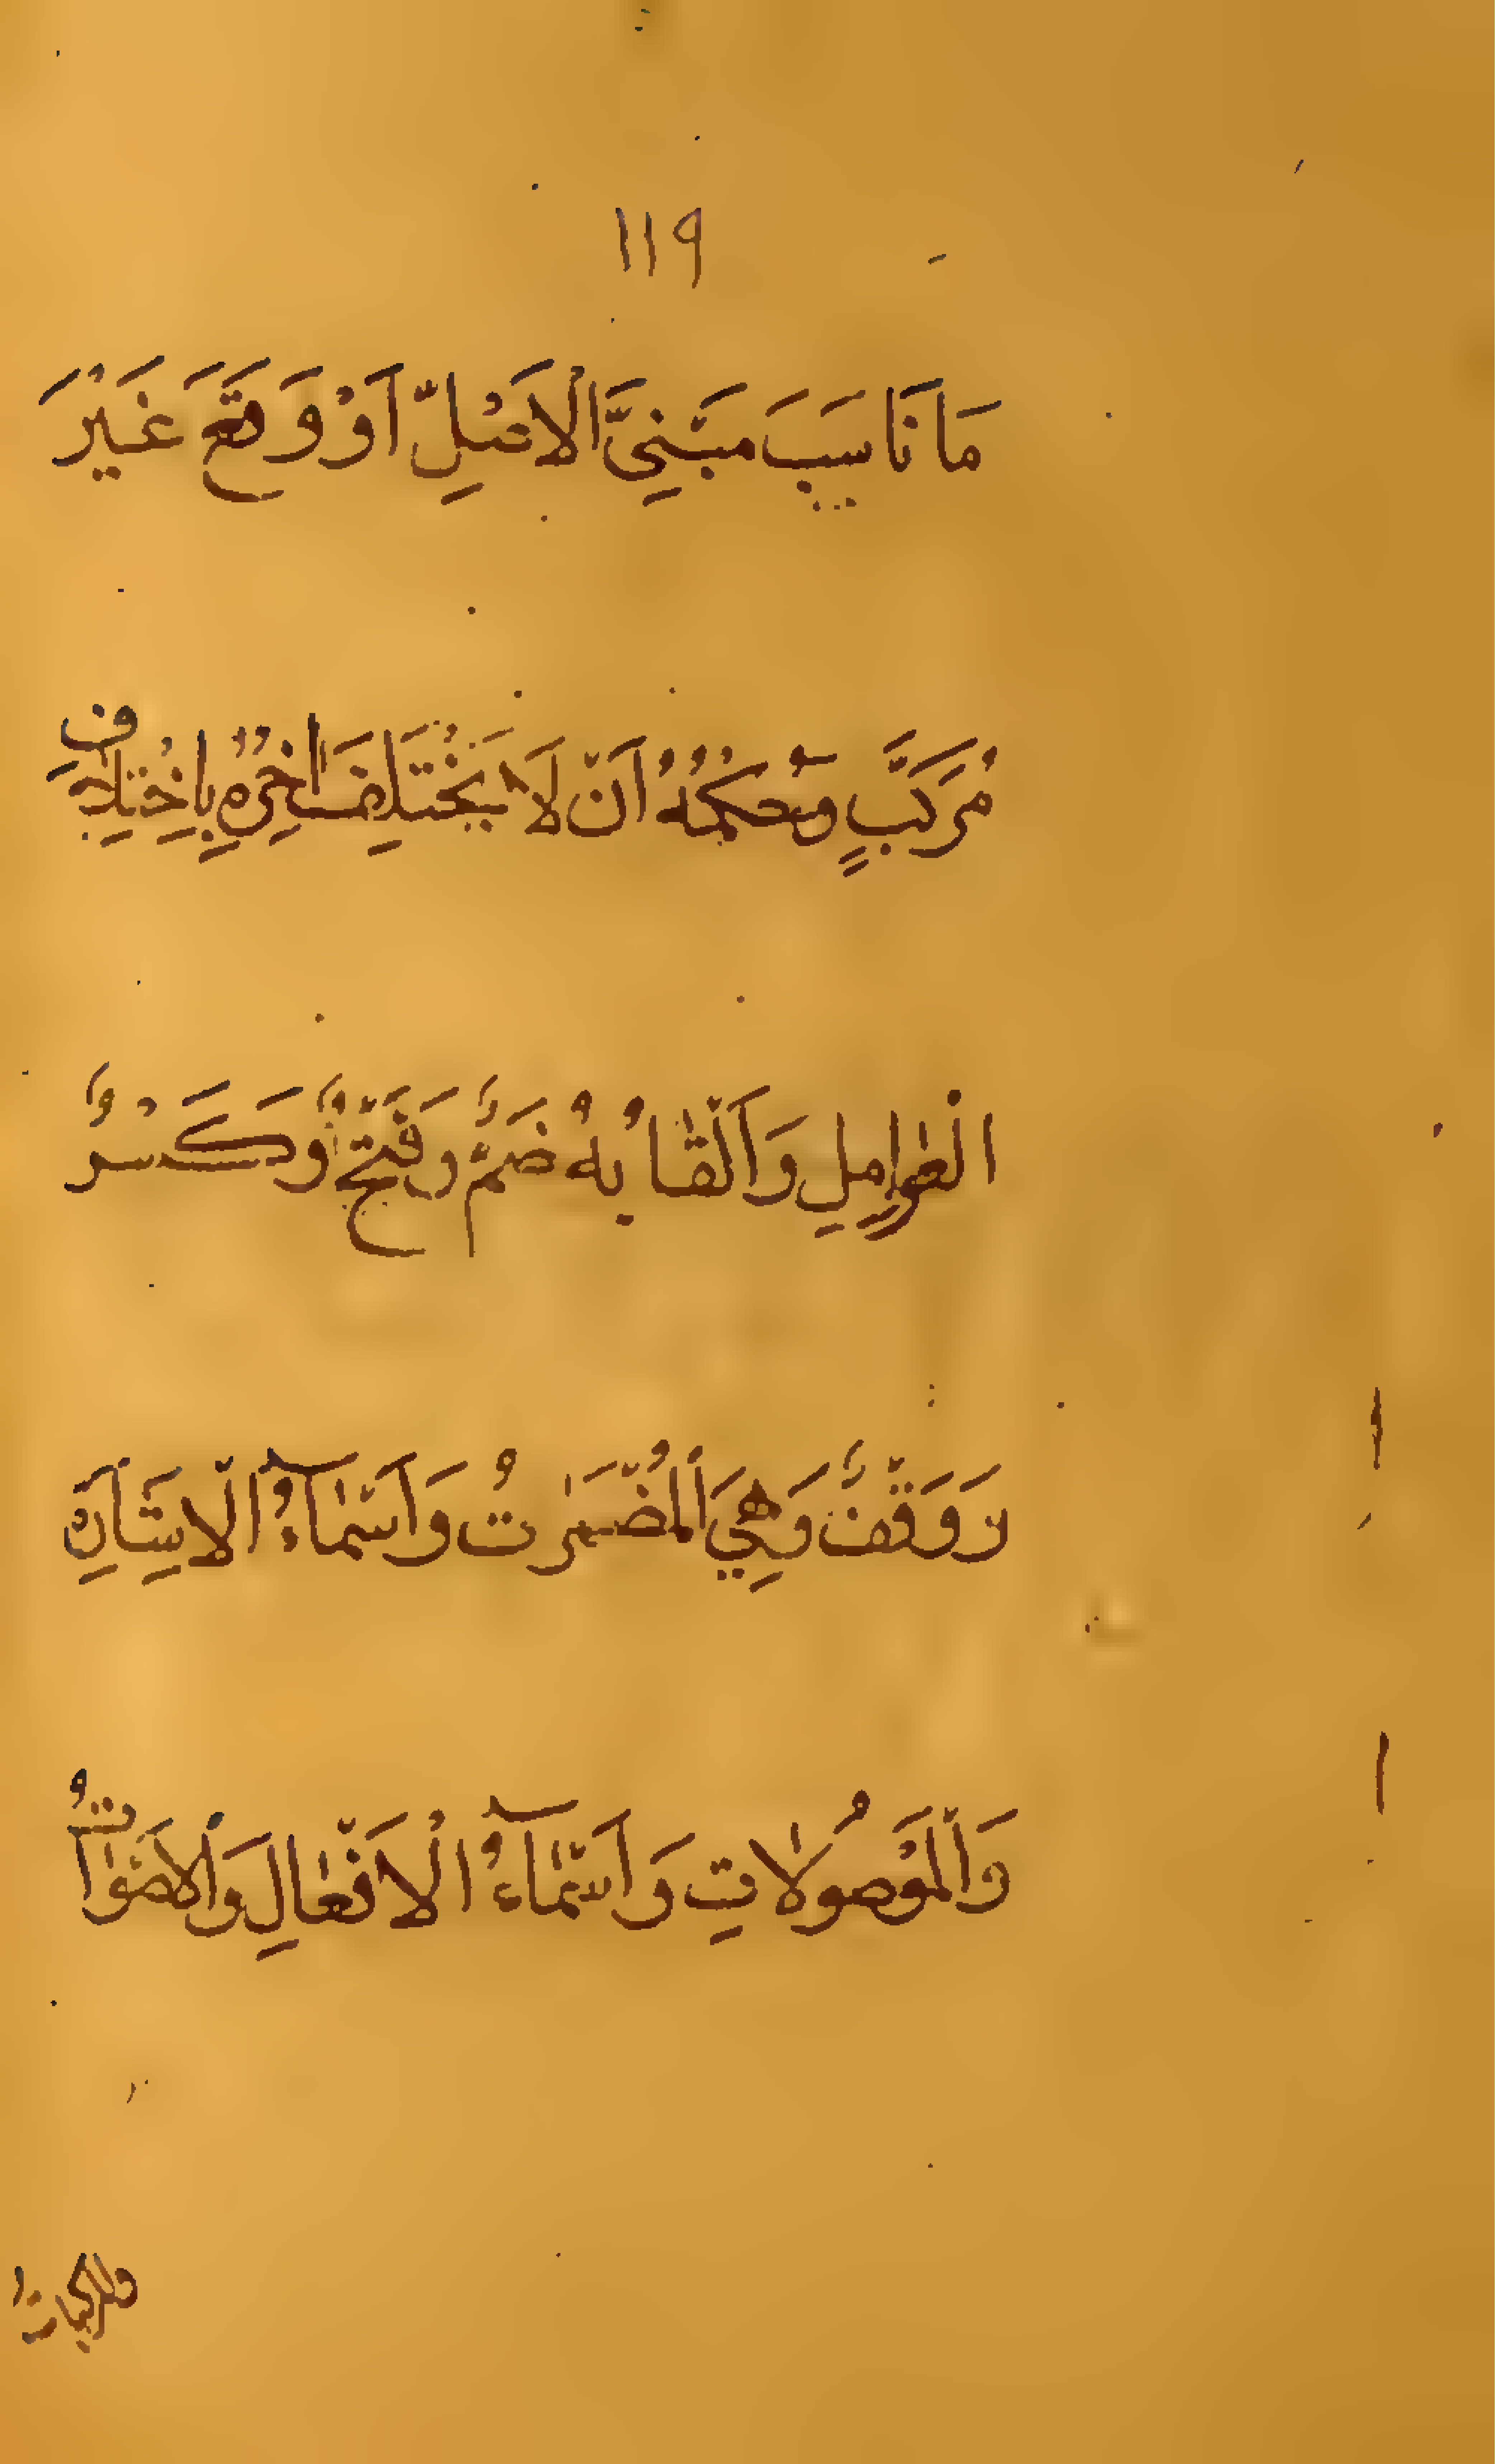 ١١٩
مَا نَاسَبَ مَبْنِىَّ الْاَصْلِ اَوْ وَقَعَ غَيْرَ
مُرَكَّبٍ وَحُكْمُهُ اَنْ لَا يَخْتَلِفَ اٰخِرُهُ بِاخْتِلَافِ
الْعَوَامِلِ وَاَلْقَابُهُ ضَمٌّ وَفَتْحٌ وَكَسْرٌ
وَوَقْفٌ وَهِيَ الْمُضْمَرٰتُ وَاَسْمَآءُ الْاِشَارَةِ
وَالْمَوْصُولَاتِ وَاَسْمَآءُ الْاَفْعَالِ وَالْاَصْوَاتُ
والمركبات